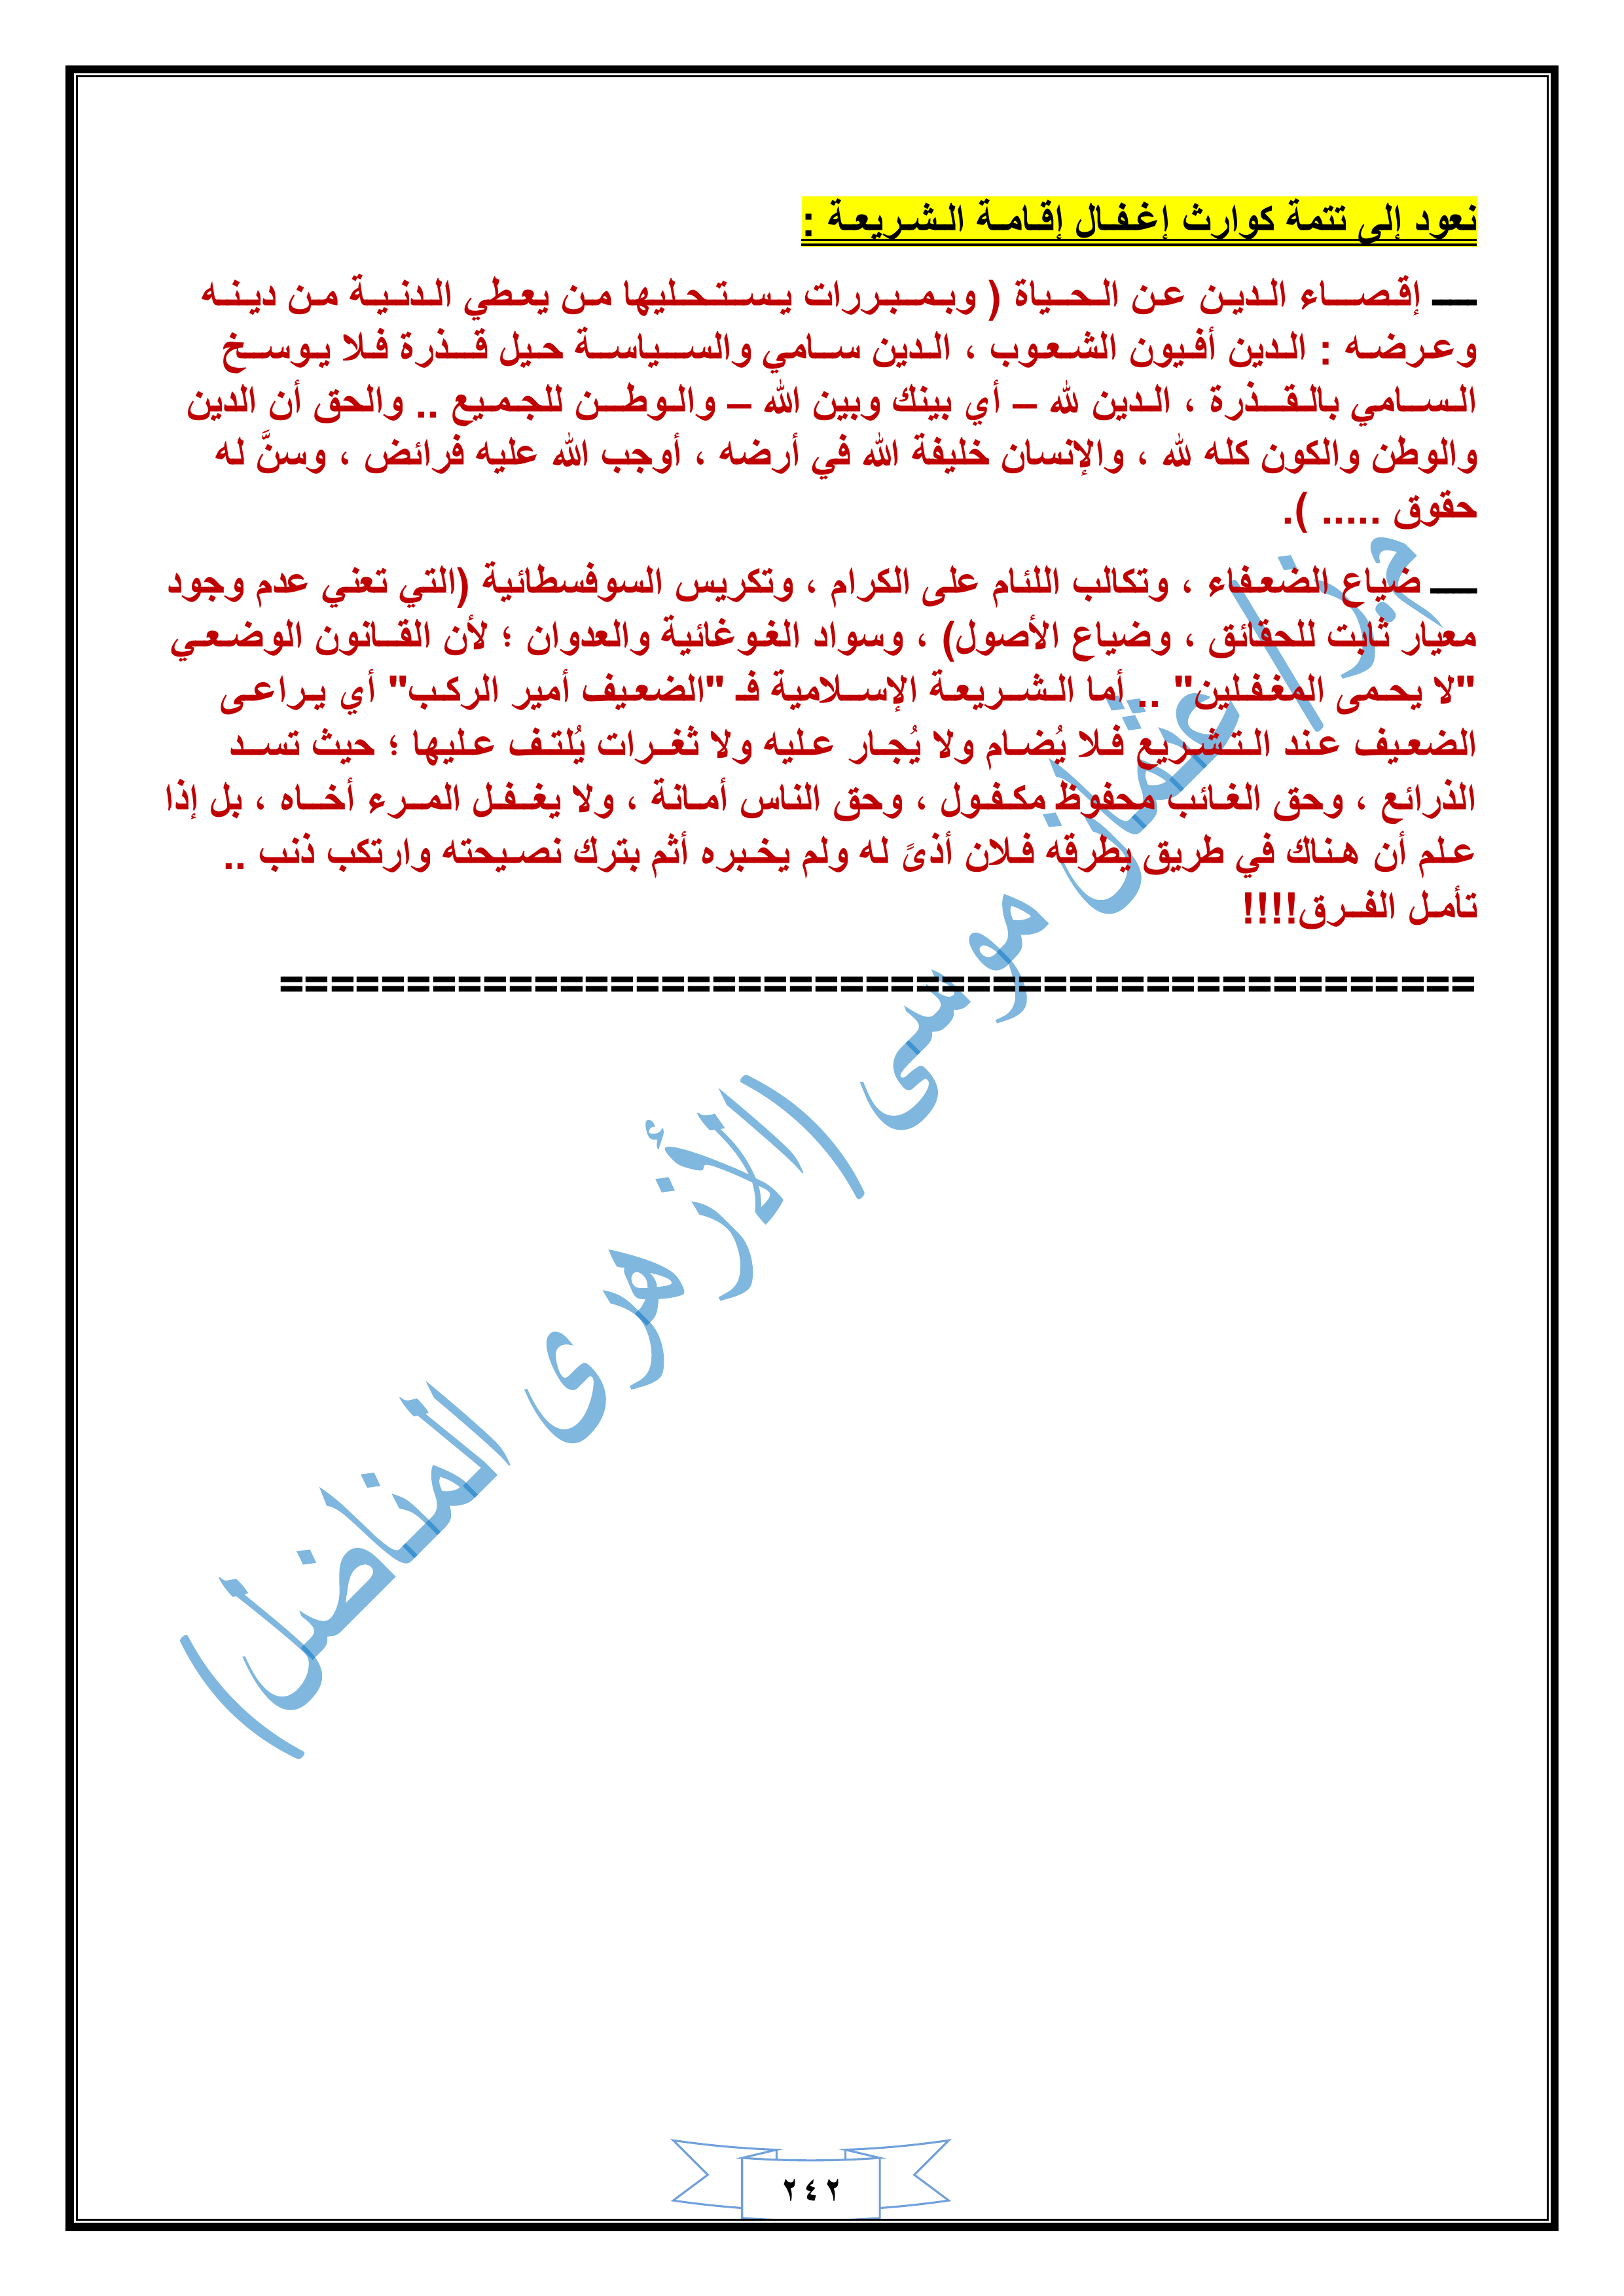 نعود إلى تتمة كوارث إغفال إقامة الشريعة :
ـــ إقصاء الدين عن الحياة ( وبمبررات يستحليها من يعطي الدنية من دينه
وعرضه : الدين أفيون الشعوب ، الدين سامي والسياسة حيل قذرة فلا يوسخ
السامي بالقذرة ، الدين لله – أي بينك وبين الله – والوطن للجميع .. والحق أن الدين
والوطن والكون كله لله ، والإنسان خليفة الله في أرضه ، أوجب الله عليه فرائض ، وسنَّ له
حقوق ..... ).
ـــ ضياع الضعفاء ، وتكالب اللئام على الكرام ، وتكريس السوفسطائية (التي تعني عدم وجود
معيار ثابت للحقائق ، وضياع الأصول) ، وسواد الغوغائية والعدوان ؛ لأن القانون الوضعي
"لا يحمى المغفلين" .. أما الشريعة الإسلامية فـ "الضعيف أمير الركب" أي يراعى
الضعيف عند التشريع فلا يُضام ولا يُجار عليه ولا ثغرات يُلتف عليها ؛ حيث تسد
الذرائع ، وحق الغائب محفوظ مكفول ، وحق الناس أمانة ، ولا يغفل المرء أخاه ، بل إذا
علم أن هناك في طريق يطرقه فلان أذىً له ولم يخبره أثم بترك نصيحته وارتكب ذنب ..
تأمل الفرق!!!!
===============================================
عثمان موسى (الأزهرى المناضل)
٢٤٢